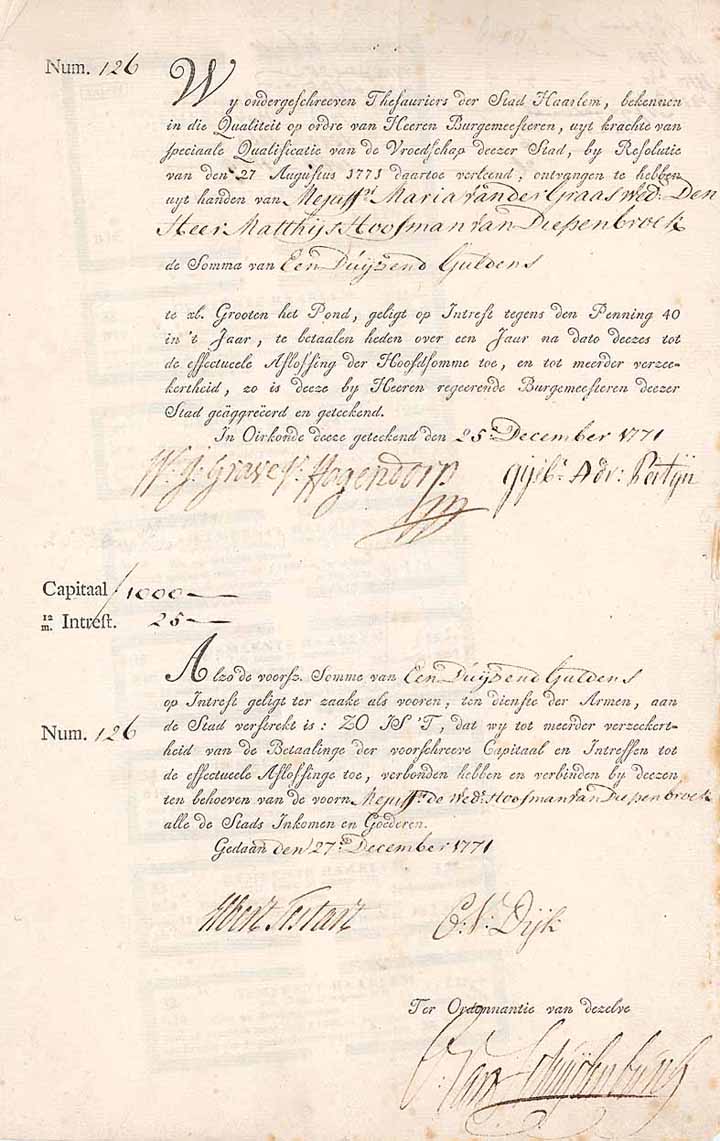 Num. 126
Wy ondergeschreeven Thesauriers der Stad Haarlem, bekennen
in die Qualiteit op ordre van Heeren Burgemeesteren, uyt krachte van
speciaale Qualificatie van de Vroedschap deezer Stad, by Resolutie
van den 27 Augustus 1771 daartoe verleend, ontvangen te hebben
uyt handen van Mejuffr. Maria van der Graas wed: Den
Heer Matthijs Hoofman van Diepenbroek
de Somma van Een Duyzend Guldens
te xl. Grooten het Pond, geligt op Intrest tegens den Penning 40
in 't Jaar, te betaalen heden over een Jaar na dato deezes tot
de effectueele Aflossing der Hoofdsomme toe, en tot meerder verzee-
kertheid, zo is deeze by Heeren regeerende Burgemeesteren deezer
Stad geäggreëerd en geteekend.
In Oirkonde deeze geteekend den 25: December 1771
W. G: Grave v. Hogendorp Gijsb: Adr: Patijn
Capitaal ƒ 1000 —
12/m. Intrest. 25 —
Alzo de voorsz. Somme van Een Duyzend Guldens
op Intrest geligt ter zaake als vooren, ten dienste der Armen, aan
de Stad verstrekt is: ZO IS 'T, dat wy tot meerder verzeekert-
Num. 126
heid van de Betaalinge der voorschreeve Capitaal en Intressen tot
de effectueele Aflossinge toe, verbonden hebben en verbinden by deezen
ten behoeven van de voorn. Mejuff: de Wed: Hoofman van Diepenbroek
alle de Stads Inkomen en Goederen.
Gedaan den 27: December 1771
Albert Testart C. V: Dijk
Ter Ordonnantie van dezelve